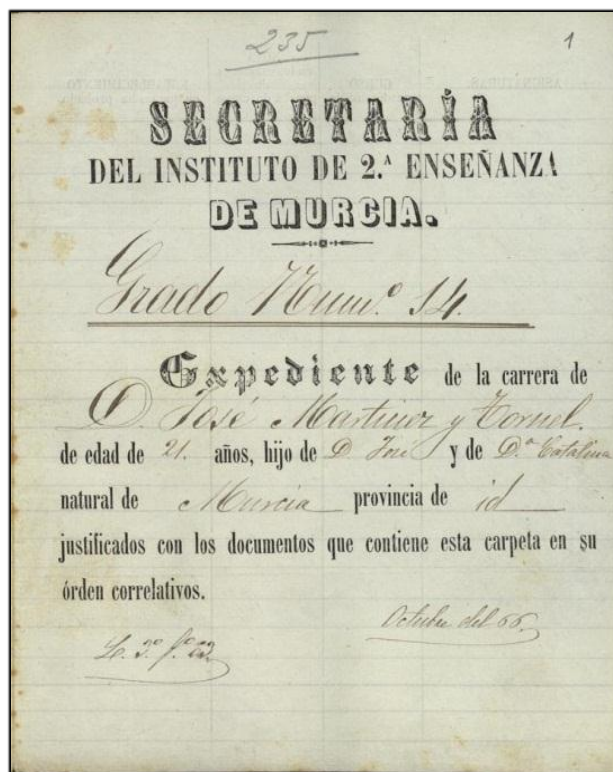 235
1
SECRETARÍA
DEL INSTITUTO DE 2.ª ENSEÑANZA
DE MURCIA.
Grado Num.º 14.
Expediente de la carrera de
D. José Martinez y Tornel.
de edad de 21. años, hijo de D José y de D.ª Catalina
natural de Murcia provincia de id
justificados con los documentos que contiene esta carpeta en su
órden correlativos.
Octubre del 66.
L. 3.º f.º